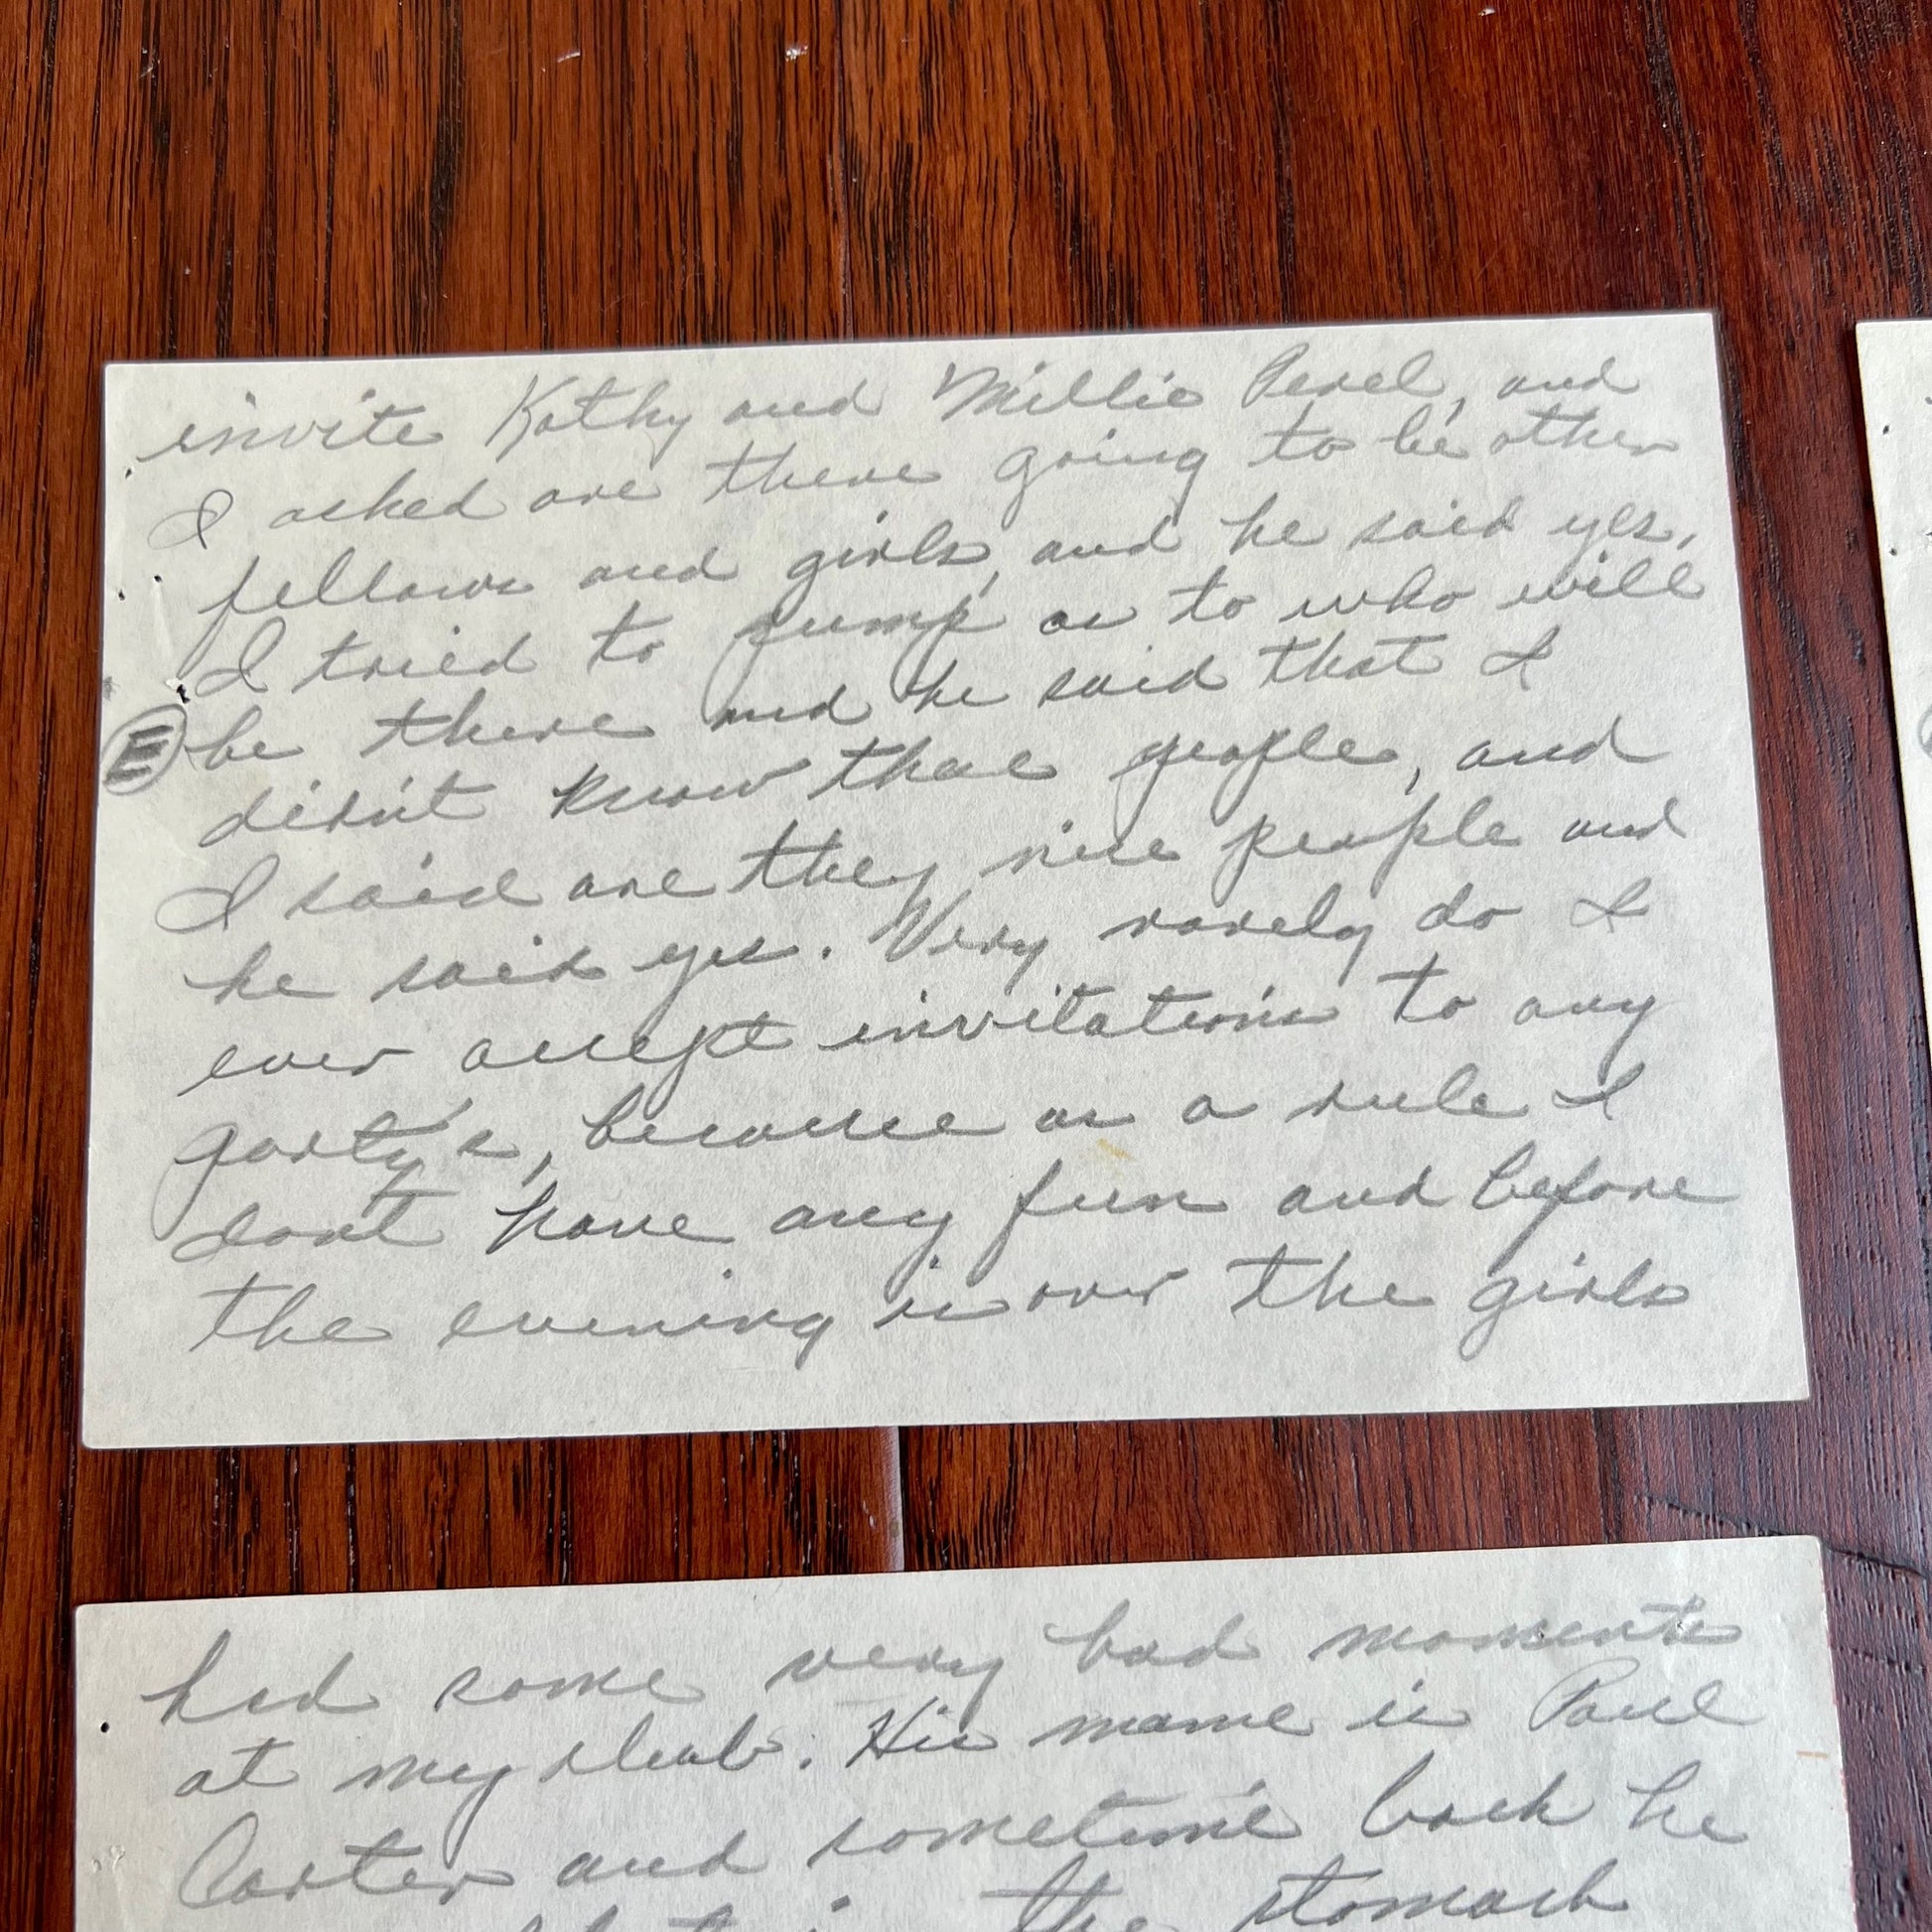 invite Kathy and Millie Perel, and
I asked are there going to be other
fellows and girls, and he said yes,
I tried to pump as to who will
E
be there and he said that I
didn't know thae people, and
I said are they nice people and
he said yes. Very rarely do I
ever accept invitations to any
party's, because as a rule I
dont have any fun and before
the evening is over the girls
had some very bad moments
at my club. His name is Paul
Carter and sometime back he
in the stomach